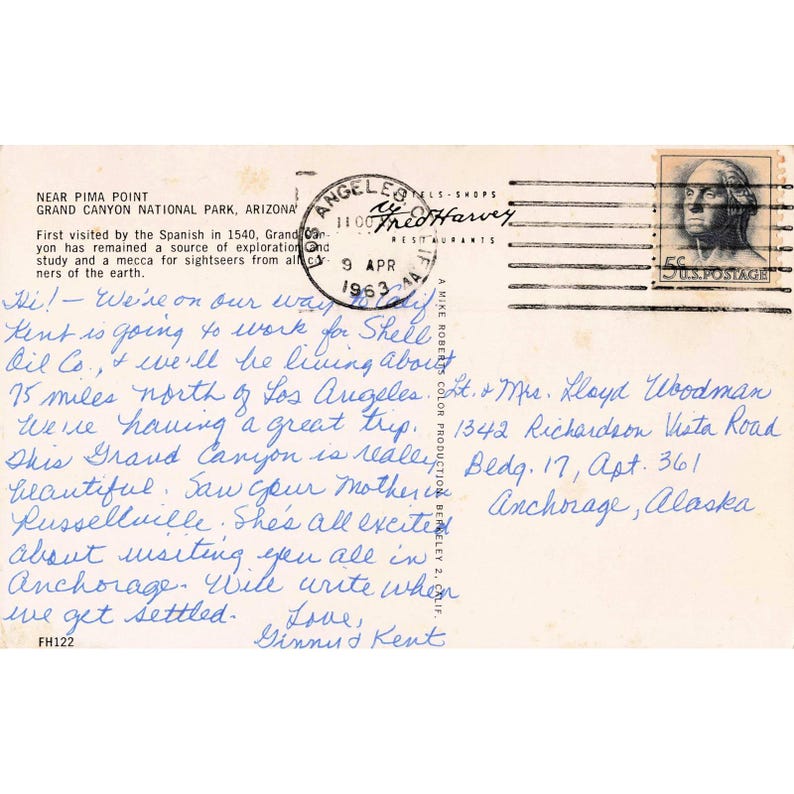 NEAR PIMA POINT
GRAND CANYON NATIONAL PARK, ARIZONA
First visited by the Spanish in 1540, Grand Can-
yon has remained a source of exploration and
study and a mecca for sightseers from all cor-
ners of the earth.
Hi! - We're on our way to Calif
Kent is going to work for Shell
Oil Co., & we'll be living about
75 miles north of Los Angeles.
We're having a great trip.
This Grand Canyon is really
beautiful. Saw your Mother in
Russellville. She's all excited
about visiting you all in
Anchorage. Will write when
we get settled.
Love,
Ginny & Kent
FH122
LOS ANGELES CALIF
9 APR
1963
Fred Harvey
HOTELS-SHOPS
RESTAURANTS
5¢ U.S. POSTAGE
A MIKE ROBERTS COLOR PRODUCTION, BERKELEY 2, CALIF.
Lt. & Mrs. Lloyd Woodman
1342 Richardson Vista Road
Bldg. 17, Apt. 361
Anchorage, Alaska